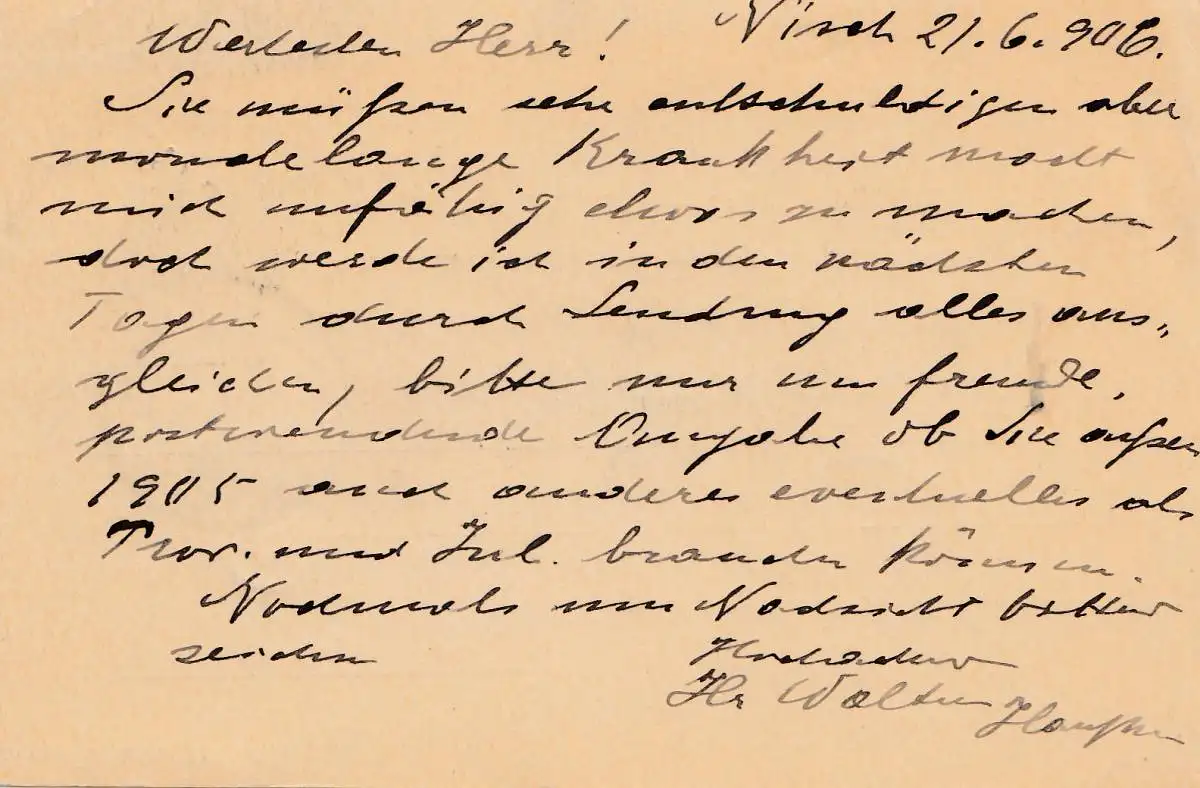 Wertester Herr! Nisch 21.6.906.
Sie müßen sehr entschuldigen aber
mondelange Krankheit macht
mich unfähig etwas zu machen,
doch werde ich in den nächsten
Tagen durch Sendung alles aus„
gleichen, bitte nur um freundl.
postwendende Angabe ob Sie außer
1905 auch anderes eventuelles als
und Jul. brauchen können.
Nochmals um Nachsicht bittend
zeichne Hochachtend
Ihr Walter